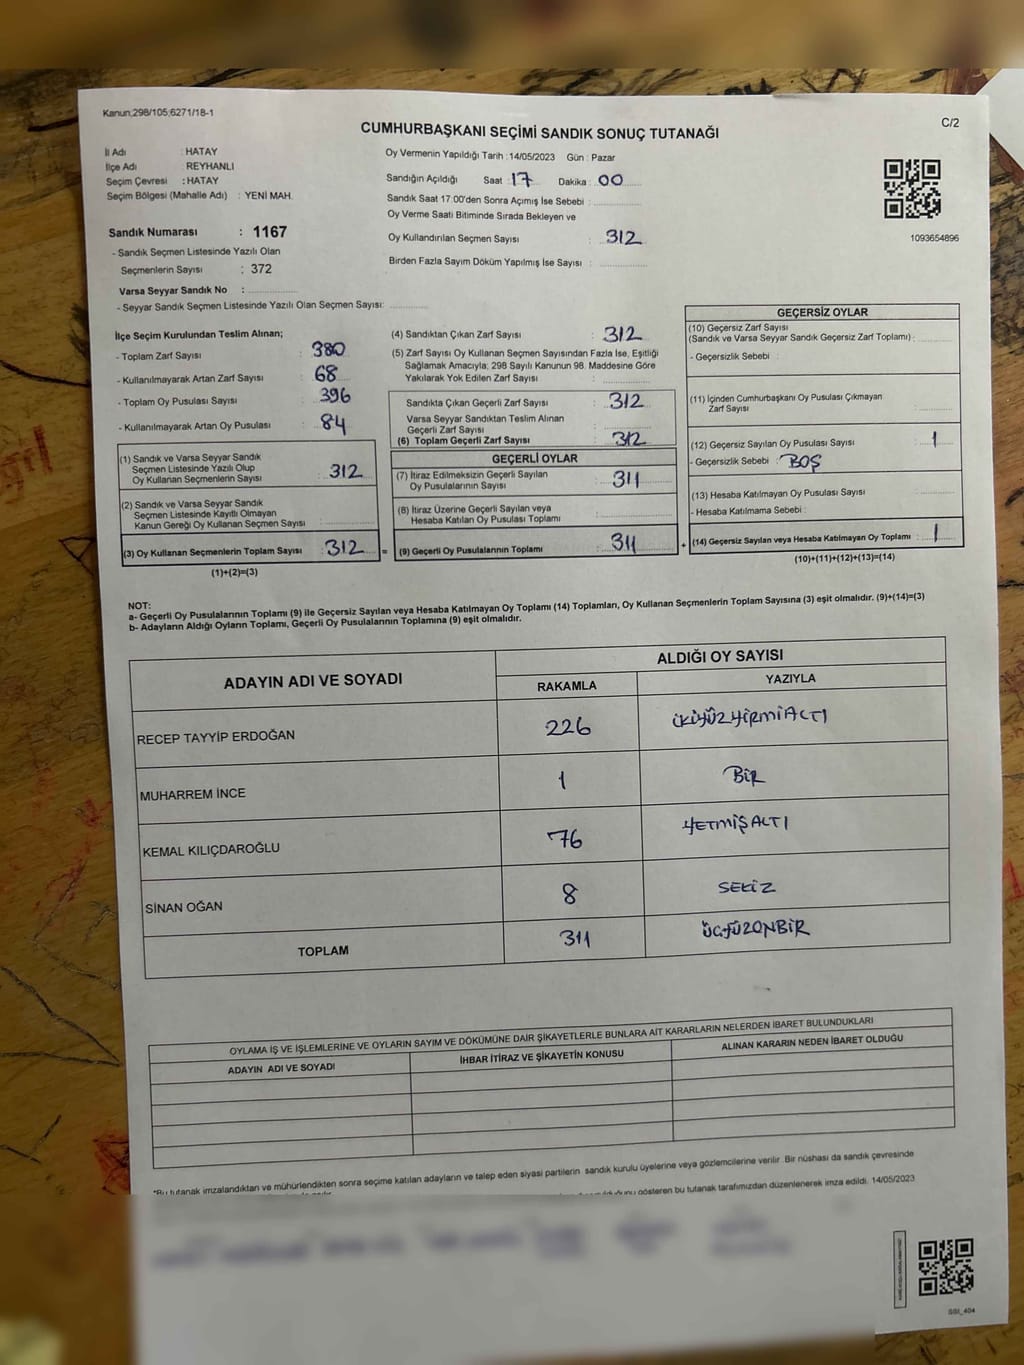 Kanun,298/105;6271/18-1
C/2
CUMHURBAŞKANI SEÇİMİ SANDIK SONUÇ TUTANAĞI
İl Adı : HATAY
İlçe Adı : REYHANLI
Seçim Çevresi : HATAY
Seçim Bölgesi (Mahalle Adı) : YENİ MAH.
Sandık Numarası : 1167
- Sandık Seçmen Listesinde Yazılı Olan
Seçmenlerin Sayısı : 372
Varsa Seyyar Sandık No :
- Seyyar Sandık Seçmen Listesinde Yazılı Olan Seçmen Sayısı:
Oy Vermenin Yapıldığı Tarih :14/05/2023 Gün : Pazar
Sandığın Açıldığı Saat : 17 Dakika : 00
Sandık Saat 17.00'den Sonra Açımış İse Sebebi :
Oy Verme Saati Bitiminde Sırada Bekleyen ve
Oy Kullandırılan Seçmen Sayısı : 312
Birden Fazla Sayım Döküm Yapılmış İse Sayısı :
1093654896
İlçe Seçim Kurulundan Teslim Alınan;
- Toplam Zarf Sayısı : 380
- Kullanılmayarak Artan Zarf Sayısı : 68
- Toplam Oy Pusulası Sayısı : 396
- Kullanılmayarak Artan Oy Pusulası : 84
(1) Sandık ve Varsa Seyyar Sandık
Seçmen Listesinde Yazılı Olup
Oy Kullanan Seçmenlerin Sayısı : 312
(2) Sandık ve Varsa Seyyar Sandık
Seçmen Listesinde Kayıtlı Olmayan
Kanun Gereği Oy Kullanan Seçmen Sayısı :
(3) Oy Kullanan Seçmenlerin Toplam Sayısı : 312 =
(1)+(2)=(3)
(4) Sandıktan Çıkan Zarf Sayısı : 312
(5) Zarf Sayısı Oy Kullanan Seçmen Sayısından Fazla İse, Eşitliği
Sağlamak Amacıyla; 298 Sayılı Kanunun 98. Maddesine Göre
Yakılarak Yok Edilen Zarf Sayısı :
Sandıkta Çıkan Geçerli Zarf Sayısı : 312
Varsa Seyyar Sandıktan Teslim Alınan
Geçerli Zarf Sayısı :
(6) Toplam Geçerli Zarf Sayısı : 312
GEÇERLİ OYLAR
(7) İtiraz Edilmeksizin Geçerli Sayılan
Oy Pusulalarının Sayısı : 311
(8) İtiraz Üzerine Geçerli Sayılan veya
Hesaba Katılan Oy Pusulası Toplamı :
(9) Geçerli Oy Pusulalarının Toplamı : 311 +
GEÇERSİZ OYLAR
(10) Geçersiz Zarf Sayısı
(Sandık ve Varsa Seyyar Sandık Geçersiz Zarf Toplamı) :
- Geçersizlik Sebebi :
(11) İçinden Cumhurbaşkanı Oy Pusulası Çıkmayan
Zarf Sayısı :
(12) Geçersiz Sayılan Oy Pusulası Sayısı : 1
- Geçersizlik Sebebi : BOŞ
(13) Hesaba Katılmayan Oy Pusulası Sayısı :
- Hesaba Katılmama Sebebi :
(14) Geçersiz Sayılan veya Hesaba Katılmayan Oy Toplamı : 1
(10)+(11)+(12)+(13)=(14)
NOT:
a- Geçerli Oy Pusulalarının Toplamı (9) ile Geçersiz Sayılan veya Hesaba Katılmayan Oy Toplamı (14) Toplamları, Oy Kullanan Seçmenlerin Toplam Sayısına (3) eşit olmalıdır. (9)+(14)=(3)
b- Adayların Aldığı Oyların Toplamı, Geçerli Oy Pusulalarının Toplamına (9) eşit olmalıdır.
ADAYIN ADI VE SOYADI ALDIĞI OY SAYISI
RAKAMLA YAZIYLA
RECEP TAYYİP ERDOĞAN 226 İKİYÜZYİRMİALTI
MUHARREM İNCE 1 BİR
KEMAL KILIÇDAROĞLU 76 YETMİŞALTI
SİNAN OĞAN 8 SEKİZ
TOPLAM 311 ÜÇYÜZONBİR
OYLAMA İŞ VE İŞLEMLERİNE VE OYLARIN SAYIM VE DÖKÜMÜNE DAİR ŞİKAYETLERLE BUNLARA AİT KARARLARIN NELERDEN İBARET BULUNDUKLARI
ADAYIN ADI VE SOYADI İHBAR İTİRAZ VE ŞİKAYETİN KONUSU ALINAN KARARIN NEDEN İBARET OLDUĞU
*Bu tutanak imzalandıktan ve mühürlendikten sonra seçime katılan adayların ve talep eden siyasi partilerin sandık kurulu üyelerine veya gözlemcilerine verilir. Bir nüshası da sandık çevresinde
gösteren bu tutanak tarafımızdan düzenlenerek imza edildi. 14/05/2023